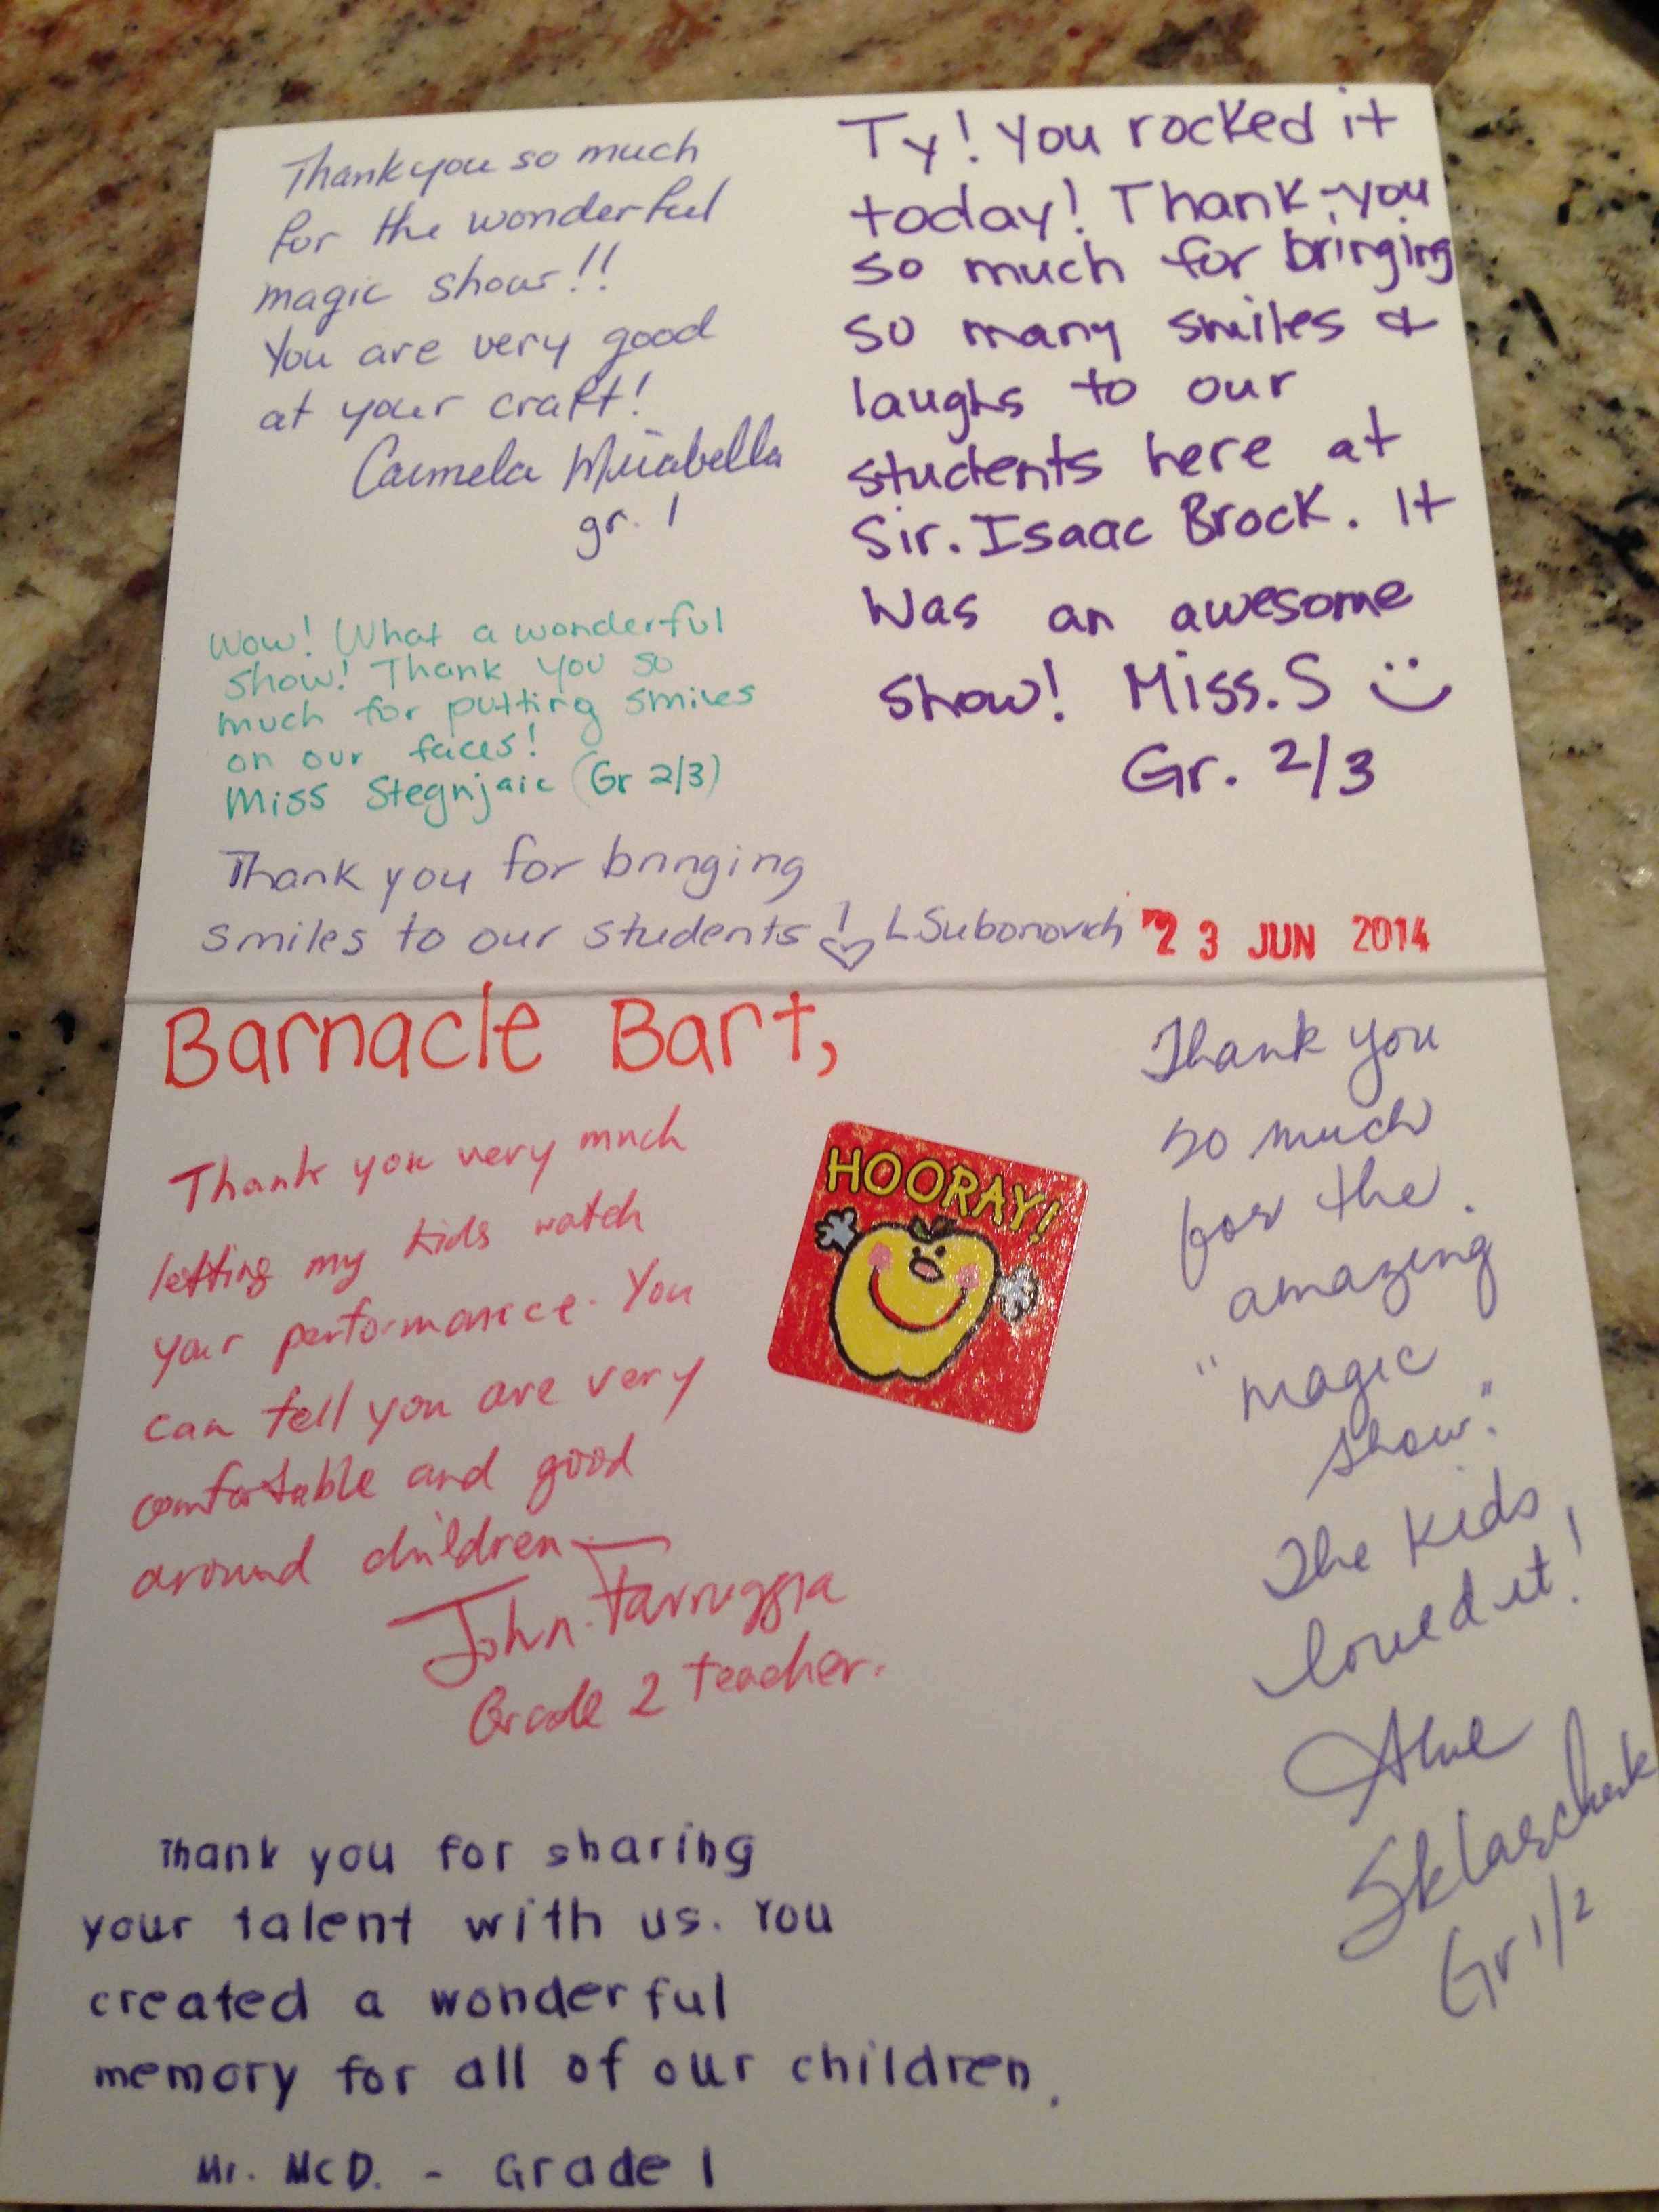 Thank you so much
for the wonderful
magic show!!
You are very good
at your craft!
Carmela Mirabella
gr. 1
Ty! You rocked it
today! Thank-you
so much for bringing
so many smiles &
laughs to our
students here at
Sir. Isaac Brock. It
was an awesome
show! Miss. S
Gr. 2/3
Wow! What a wonderful
show! Thank you so
much for putting smiles
on our faces!
Miss Stegnjaic (Gr 2/3)
Thank you for bringing
smiles to our students! LSubonovich
23 JUN 2014
Barnacle Bart,
Thank you very much
letting my kids watch
your performance. You
can tell you are very
comfortable and good
around children
John Farruggia
Grade 2 teacher.
HOORAY!
Thank you
so much
for the
amazing
"magic
show."
The kids
loved it!
Gr 1/2
Thank you for sharing
your talent with us. You
created a wonderful
memory for all of our children.
Mr. McD. - Grade 1